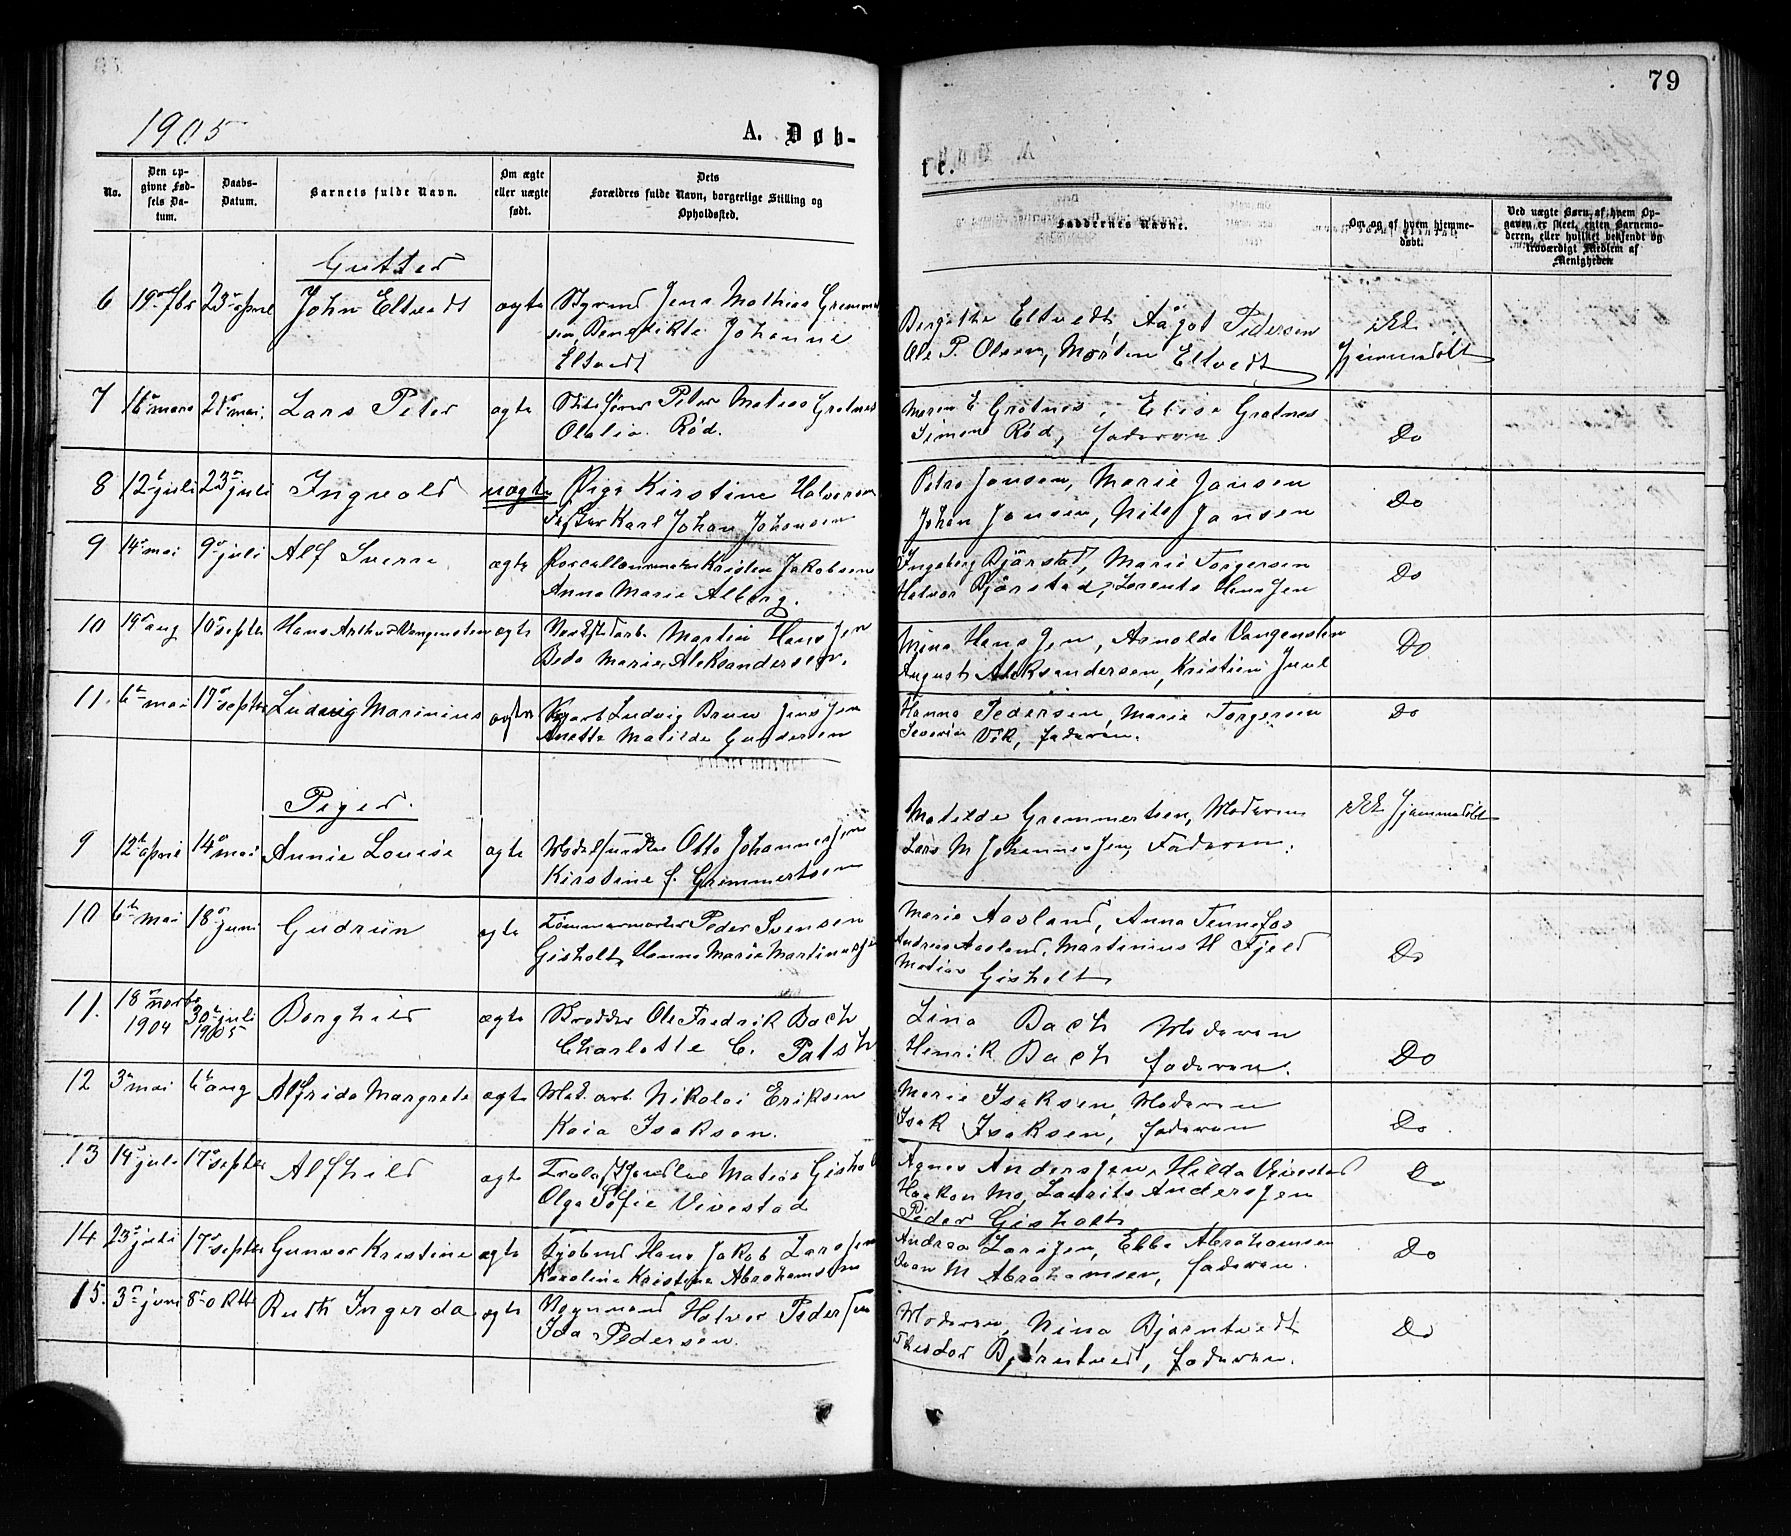 79
1905
A. Døb-
te.
No.
Den op-
givne Fød-
sels Da-
tum.
Daabs-
Datum.
Barnets fulde Navn.
Om ægte
eller uægte
født.
Dets
Forældres fulde Navn, borgerlige Stilling og
Opholdssted.
Faddernes Navne.
Om og af hvem hjemme-
døbt.
Ved uægte Børn, af hvem Op-
gaven er skeet, enten Barnemo-
deren, eller hvilket bekjendt og
troværdigt Medlem af
Menigheden
Gutter
6 19 23 april John Eltvedt ægte Styrmd Jens Mathias
Benedikte Johanne
Eltvedt
Bergithe Eltvedt, Aagot Pedersen
Ole P. Olsen, Morten Eltvedt
ikke
hjemmedøbt
7 16 mars 21 mai Lars Peter ægte Peter Matias Grotnes
Olalia Rød.
Maren E Grotnes, Elise Grotnes
Simon Rød, faderen
Do
8 12 juli 23 juli Ingvald uægte Pige Kirstine Halvorsen
Karl Johan Johansen
Petra Jansen, Marie Jansen
Johan Jansen, Nils Jansen
Do
9 14 mai 9 juli Alf Sverre ægte Kristen Jakobsen
Anna Marie Alborg.
Ingeborg Bjørstad, Marie Torgersen
Halvor Bjørstad, Lorents Hansen
Do
10 19 aug 10 septbr Hans Arthur Vangensten ægte Verkstedarb Martin Hansen
Beda Marie Aleksandersen.
Mina Hansen, Arnolda Vangensten
August Aleksandersen, Kristian Juul
Do
11. 6 mai 17 septbr Ludvig Marinius ægte Ludvig Brun Jensen
Anette Matilde Gundersen
Hanna Pedersen, Marie Torgersen
Severin Vik, faderen.
Do
Piger.
9 12 april 14 mai Annie Louise ægte Otto Johannesen
Kirstine f. Gremmertsen
Matilde Gremmertsen, Moderen
Lars M Johannesen, Faderen.
ikke hjemmedøbt
10 6 mai 18 juni Gudrun ægte Peder Svensen
Gisholt, Hanna Marie
Marie Aasland, Anna Tennefos
Andreas Aasland, Martinius H Fjeld
Matias Gisholt
Do
11. 18 novbr
1904
30 juli
1905
Borghild ægte Skrædder Ole Fredrik Bach
Charlotte C.
Lina Bach Moderen
Henrik Bach faderen.
Do
12 3 mai 6 aug Alfrida Margrete ægte Mek. arb Nikolai Eriksen
Kaia Isaksen.
Marie Isaksen, Moderen
Isak Isaksen, faderen
Do
13 14 juli 17 septbr Alfhild ægte Matias Gisholt
Olga Sofie Vivestad
Agnes Andersen, Hilda Vivestad
Haakon Mo, Laurits Andersen
Peder Gisholt
Do
14 23 juli 17 septbr Gunvor Kristine ægte Hans Jakob Larsen
Karoline Kristine Abrahamsen
Andrea Larsen, Ebba Abrahamsen
M Abrahamsen, faderen.
Do
15. 3 juni 8 oktbr Ruth Ingerda ægte Vognmand Halvor Pedersen
Ida Pedersen.
Moderen, Nina Bjørntvedt
Theodor Bjørntvedt, faderen.
Do